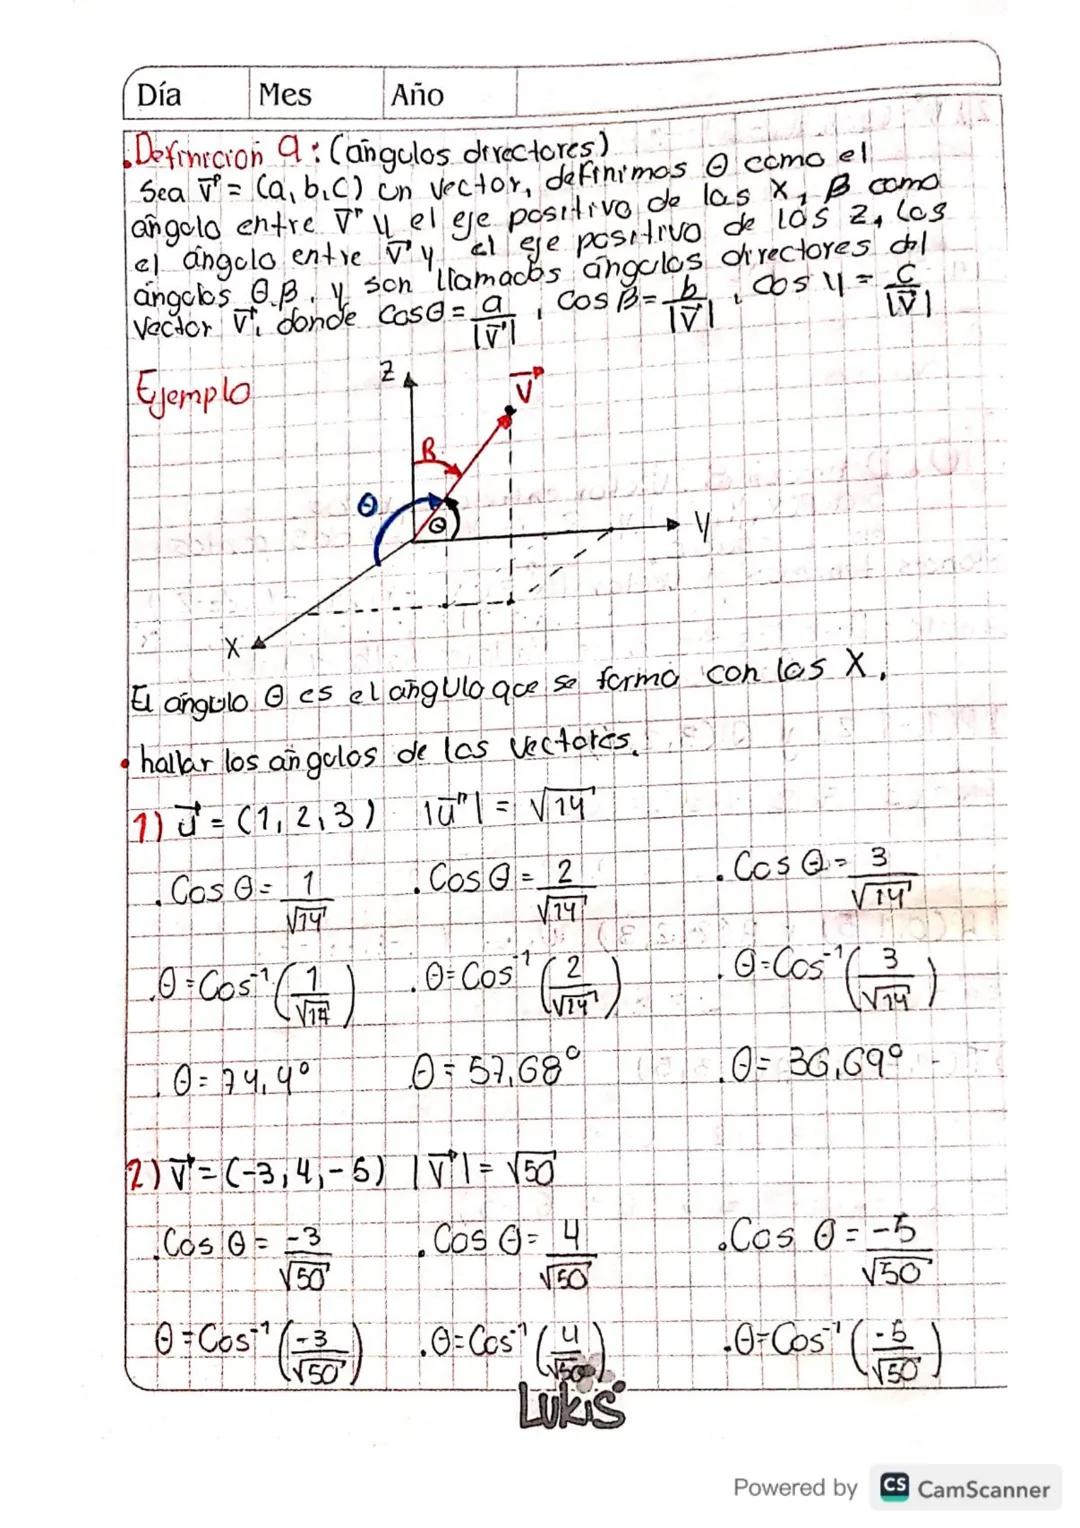 Día Mes Año
.Definición 9: (ángulos directores)
Sea V = (a, b, c) un vector, definimos θ como el
ángulo entre V y el eje positivo de las X, β como
el ángulo entre V y el eje positivo de las z, los
ángulos θ, β, y son llamados ángulos directores del
Vector V, donde cosθ = a/|V|, cos β = b/|V|, cos y = c/|V|
Ejemplo
z
V
B
θ
θ
y
X
El ángulo θ es el angulo que se forma con los X.
• hallar los ángulos de los vectores.
1) u = (1, 2, 3) |u| = √14
. Cos θ = 1/√14 . Cos θ = 2/√14 . Cos θ = 3/√14
. θ = Cos⁻¹(1/√14) . θ = Cos⁻¹(2/√14) . θ = Cos⁻¹(3/√14)
. θ = 74,4° θ = 57,68° . θ = 36,69°
2) V = (-3, 4, -5) |V| = √50
. Cos θ = -3/√50 . Cos θ = 4/√50 . Cos θ = -5/√50
θ = Cos⁻¹(-3/√50) . θ = Cos⁻¹(4/√50) . θ = Cos⁻¹(-5/√50)
LUKIS
Powered by CS CamScanner